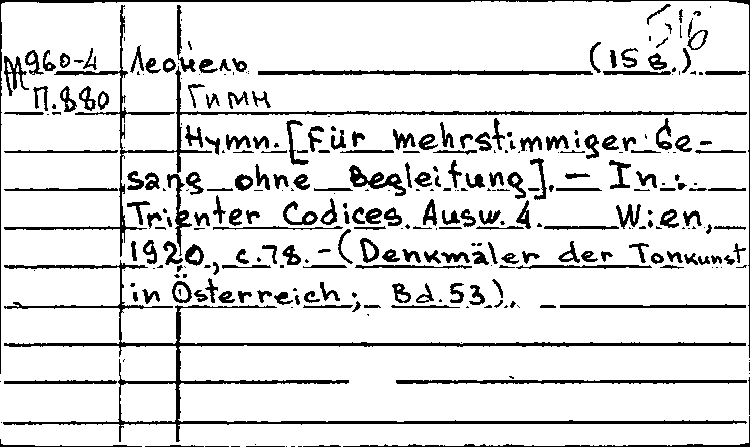 516
М960-4 Леонель (15 в.)
П.880 Гимн
Hymn. [Für mehrstimmiger Ge-
sang ohne Begleitung]. – In.:
Trienter Codices. Ausw. 4. Wien,
1920, с.78. – (Denkmäler der Tonkunst
in Österreich; Bd. 53).